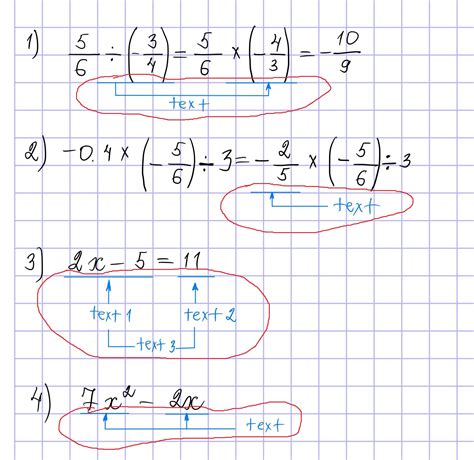 1) 5/6 ÷ (-3/4) = 5/6 × (-4/3) = -10/9
text
2) -0.4 × (-5/6) ÷ 3 = -2/5 × (-5/6) ÷ 3
text
3) 2x - 5 = 11
text 1 text 2
text 3
4) 7x² - 2x
text